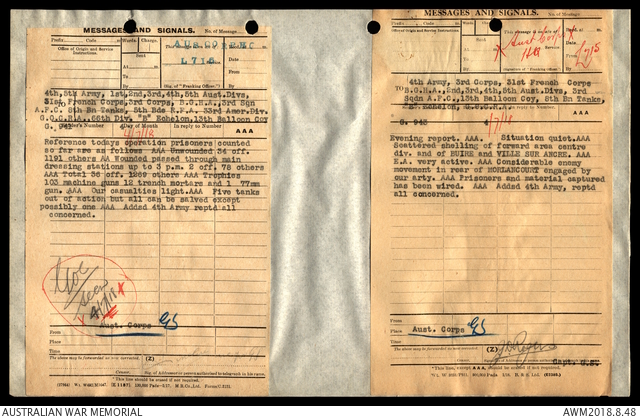 MESSAGES AND SIGNALS. No. of Message
Prefix Code m Words. Charge.
Office of Origin and Service Instructions.
Sent
At m.
To
By
L713
Date
From
By
4th,5th Army, 1st,2nd,3rd,4th,5th Aust.Divs,
TO 31st French Corps,3rd Corps, 3rd Sqn
A.F.C. 8th Bn Tanks, 5th Bde 33rd Amer.Div.
66th Div. "B" Echelon,13th Balloon Coy
G. Sender's Number Day of Month In reply to Number AAA
4/7/18
Reference todays operation prisoners counted
so far are as follows AAA Unwounded 34 off.
1191 others AA Wounded passed through main
dressing stations up to 3 p.m. 2 off. 78 others
AAA Total 36 off. 1269 others AAA Trophies
103 machine guns 12 trench mortars and 1 77mm
gun. AAA Our casualties light.AAA Five tanks
out of action but all can be salved except
possibly one AAA Added 4th Army reptd all
concerned.
Seen
4/7/18
From
Place Aust. Corps
Time
The above may be forwarded as now corrected. (Z)
Censor. Sig. of Addressor or person authorised to telegraph in his name.
* This line should be erased if not required.
MESSAGES AND SIGNALS. No. of Message
Prefix Code m
Office of Origin and Service Instructions.
This message is on a/c of:
Aust Corps
HQ
L715
At m.
To
By
Date
From
By
4th Army, 3rd Corps, 31st French Corps
TO 3rd,4th,5th Aust.Divs, 3rd
Sqdn A.F.C.,13th Balloon Coy, 8th Bn Tanks,
Echelon,
G. 943 4/7/18 AAA
Evening report. AAA. Situation quiet.AAA
Scattered shelling of forward area centre
div. and of BUIRE and VILLE SUR ANCRE. AAA
E.A. very active. AAA Considerable enemy
movement in rear of MORLANCOURT engaged by
our arty. AAA Prisoners and material captured
has been wired. AAA Added 4th Army, reptd
all concerned.
From
Place Aust. Corps
Time
The above may be forwarded as now corrected. (Z)
Capt. G.S.
Censor.
* This line, except AAA, should be erased if not required.
AUSTRALIAN WAR MEMORIAL
AWM2018.8.48